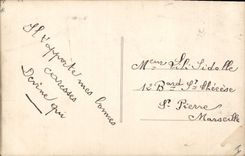 Il t'apporte mes bonnes
caresses
Devine qui
Melle
12 Bard Ste Thérèse
St Pierre
Marseille